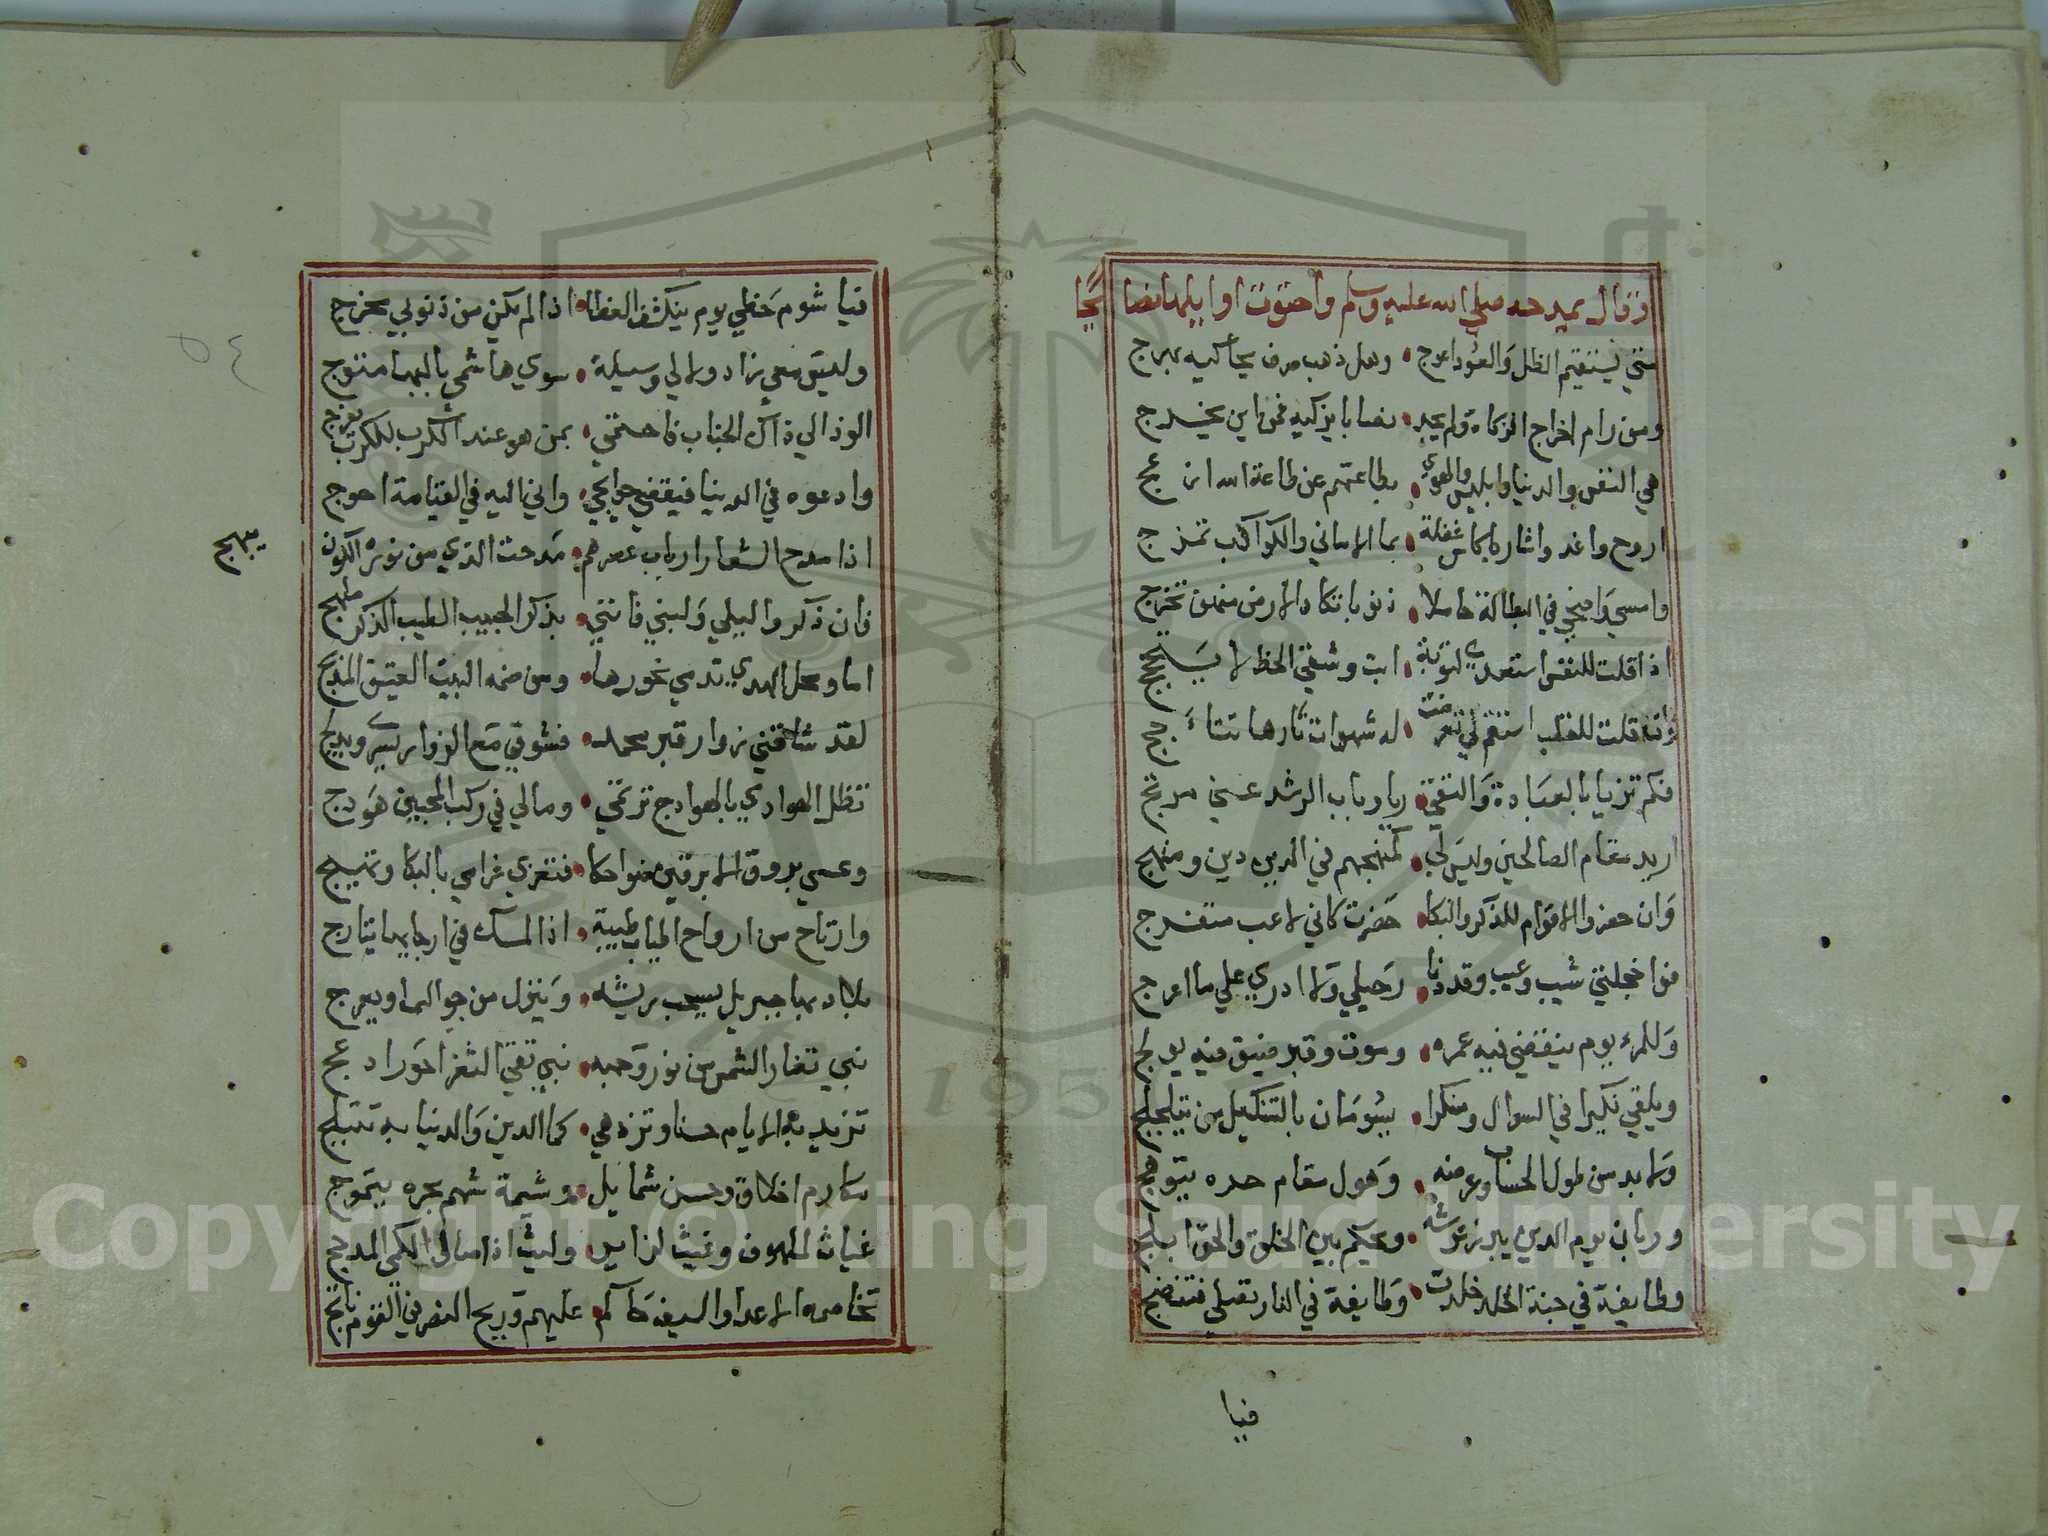 وقال يمدحه صلي الله عليه وسلم واحتوت اوايلها نصائحا
متي يستقيم الظل والعود اعوج • وهل ذهب صرف يحاكيه بهرج
ومن رام اخراج الزكاة ولم يجد • نصابا يزكيه فمن اين يخرج
هي النفس والدنيا وابليس والهوي • بطاعتهم عن طاعة الله ازعج
اروح واغدو اشاربا كاس غفلة • بما الاماني والكواكب تمزج
وامسي واضحي في البطالة حاملا • ذنوبا تكاد الارض منهن تخرج
اذا قلت للنفس استعدي لتوبة • ابت وشقي الحظ لا يستحج
وان قلت للقلب استقم لي تعرضت • له شهوات نارها تتاجج
فكم تزيا بالعبادة والتقي • وباب الرشد عني مرتج
اريد مقام الصالحين وليس لي • كمنهجهم في الدين دين ومنهج
وان حضر الاقوام للذكر والبكا • حضرت كاني لاعب متفرج
فوا خجلتي شيب وعيب وقد دنا • رحيلي ولا ادري علي ما اعرج
وللمرء يوم ينقضي فيه عمره • وموت وقبر ضيق فيه يولج
ويلقي نكيرا في السوال ومنكرا • يسومان بالتنكيل من يتلجلج
ولا بد من طول الحساب وعرضه • وهول مقام حره يتوهج
وربان يوم الدين يبرز عرشه • ويحكم بين الخلق والحق ابلج
وطايفة في جنة الخلد خلدت • وطايفة في النار تصلي فتنضج
فيا
فيا شوم حظي يوم ينكشف الغطا • اذا لم يكن من ذنوبي مخرج
وليس معي زاد ولا لي وسيلة • سوي هاشمي بالبها متوج
الوذ الي ذاك الجناب فاحتمي • بمن هو عند الكرب للكرب يفرج
وادعوه في الدنيا فيقضي حوايجي • واني اليه في القيامة احوج
اذا مدح الشعار ارباب عصرهم • مدحت الذي من نوره الكون
يبهج
فان ذكروا ليلي ولبني فانني • بذكر الحبيب الطيب الذكر ملهج
اما ومحل الهدي تدمي نحورها • ومن ضمه البيت العتيق المدبج
لقد شاقني زوار قبر محمد • فشوقي مع الزوار يسري ويدلج
تظل الهوادي بالهوادج ترتمي • ومالي في ركب المحبين هودج
وعسي بروق الابرقين ضواحكا • فتغري غرامي بالبكا وتهيج
وارتاح من ارواح اطياب طيبة • اذا المسك في ارجايها يتارج
بلاد بها جبريل يسحب ريشه • وينزل من جو السما ويعرج
نبي تغار الشمس من نور وجهه • نبي نقي الثغر احور ادعج
تزيد به الايام حسنا وتزدهي • كما الدين والدنيا به تتبلج
مكارم اخلاق وحسن شمايل • وشيمة شهم بحره يتموج
غياث لملهوف وغيث لنازل • وليث اذا صال الكمي المدجج
تخاصمه الاعدا والسيف حاكم • عليهم وريح النصر في القوم نايج
٥٤